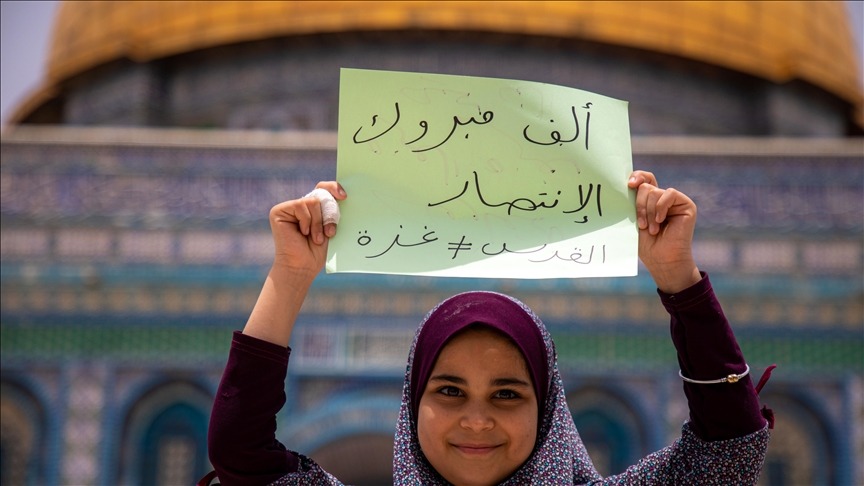 ألف مبروك
الإنتصار
القدس # غزة